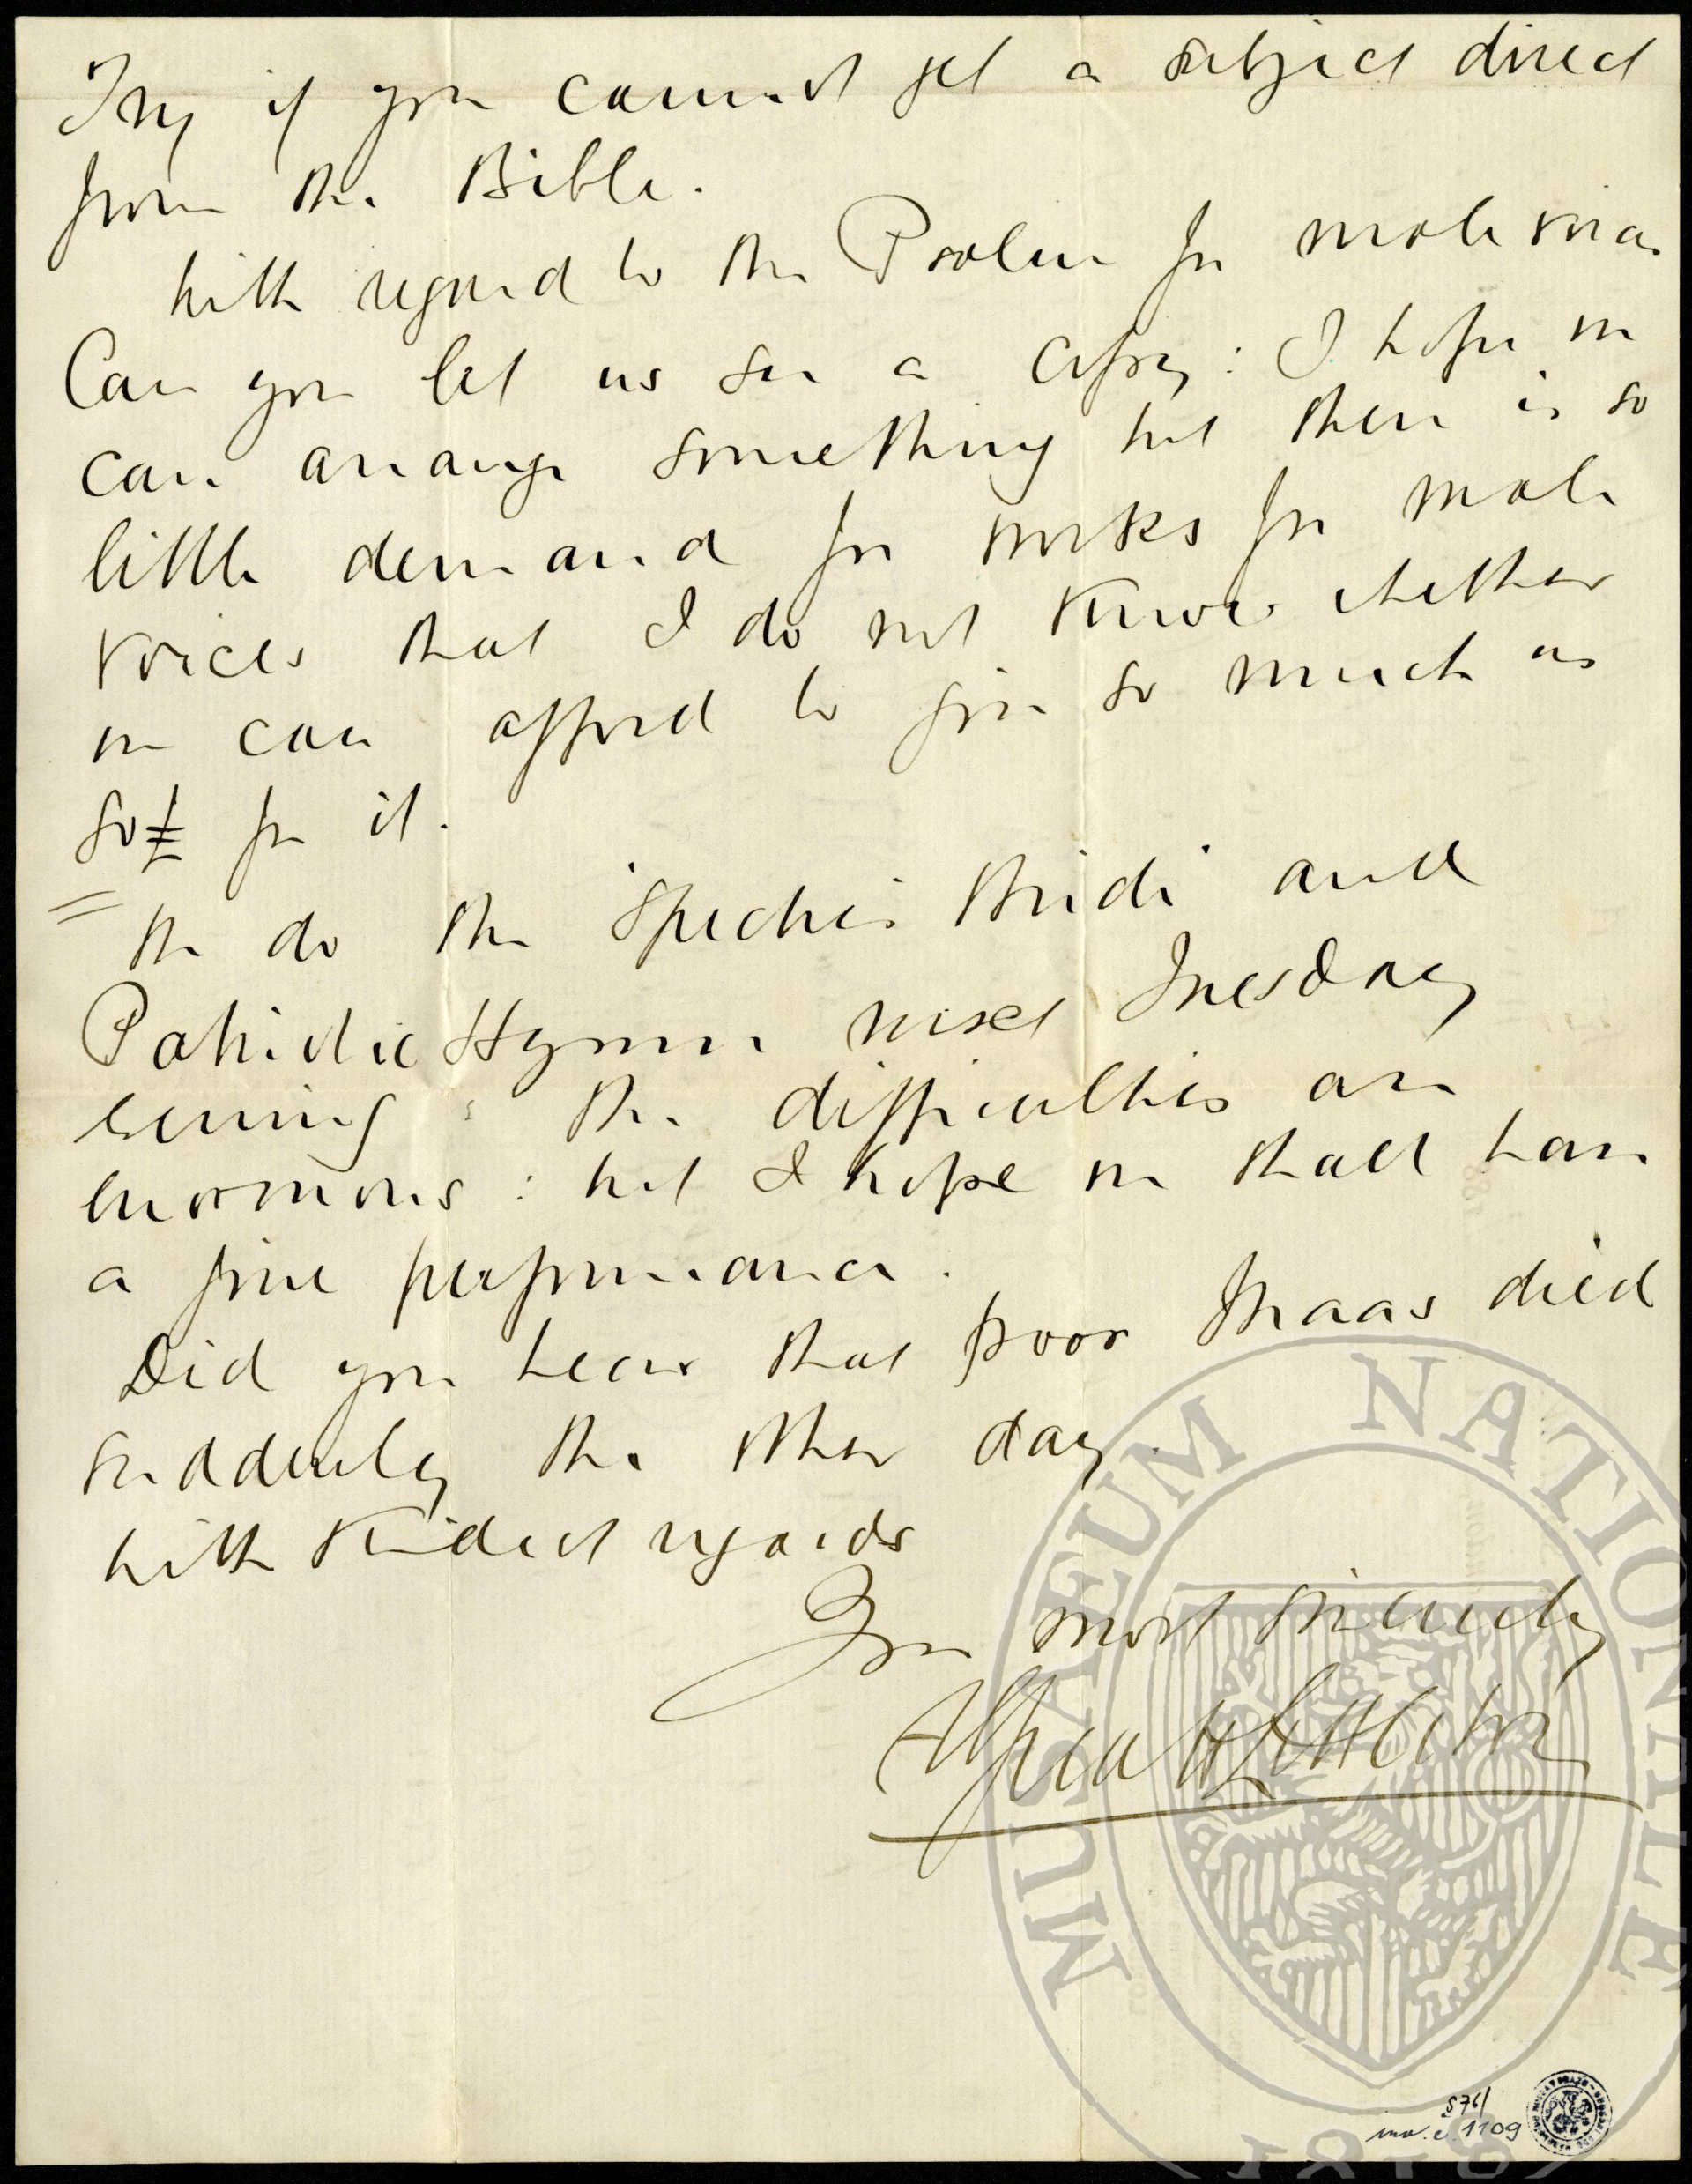 Try if you cannot get a subject direct
from the Bible.
With regard to the Psalm for male voices
Can you let us see a copy: I hope we
can arrange something but there is so
little demand for works for male
voices that I do not know whether
we can afford to give so much as
£ for it.
We do the Spectre's Bride and
Patriotic Hymn next Tuesday
evening: the difficulties are
enormous: but I hope we shall have
a fine performance.
Did you hear that poor Maas died
suddenly the other day.
With kindest regards
Yours most sincerely
Alfred H Littleton
576/
inv. č. 1109
MUSAEUM NATIONALE
1818